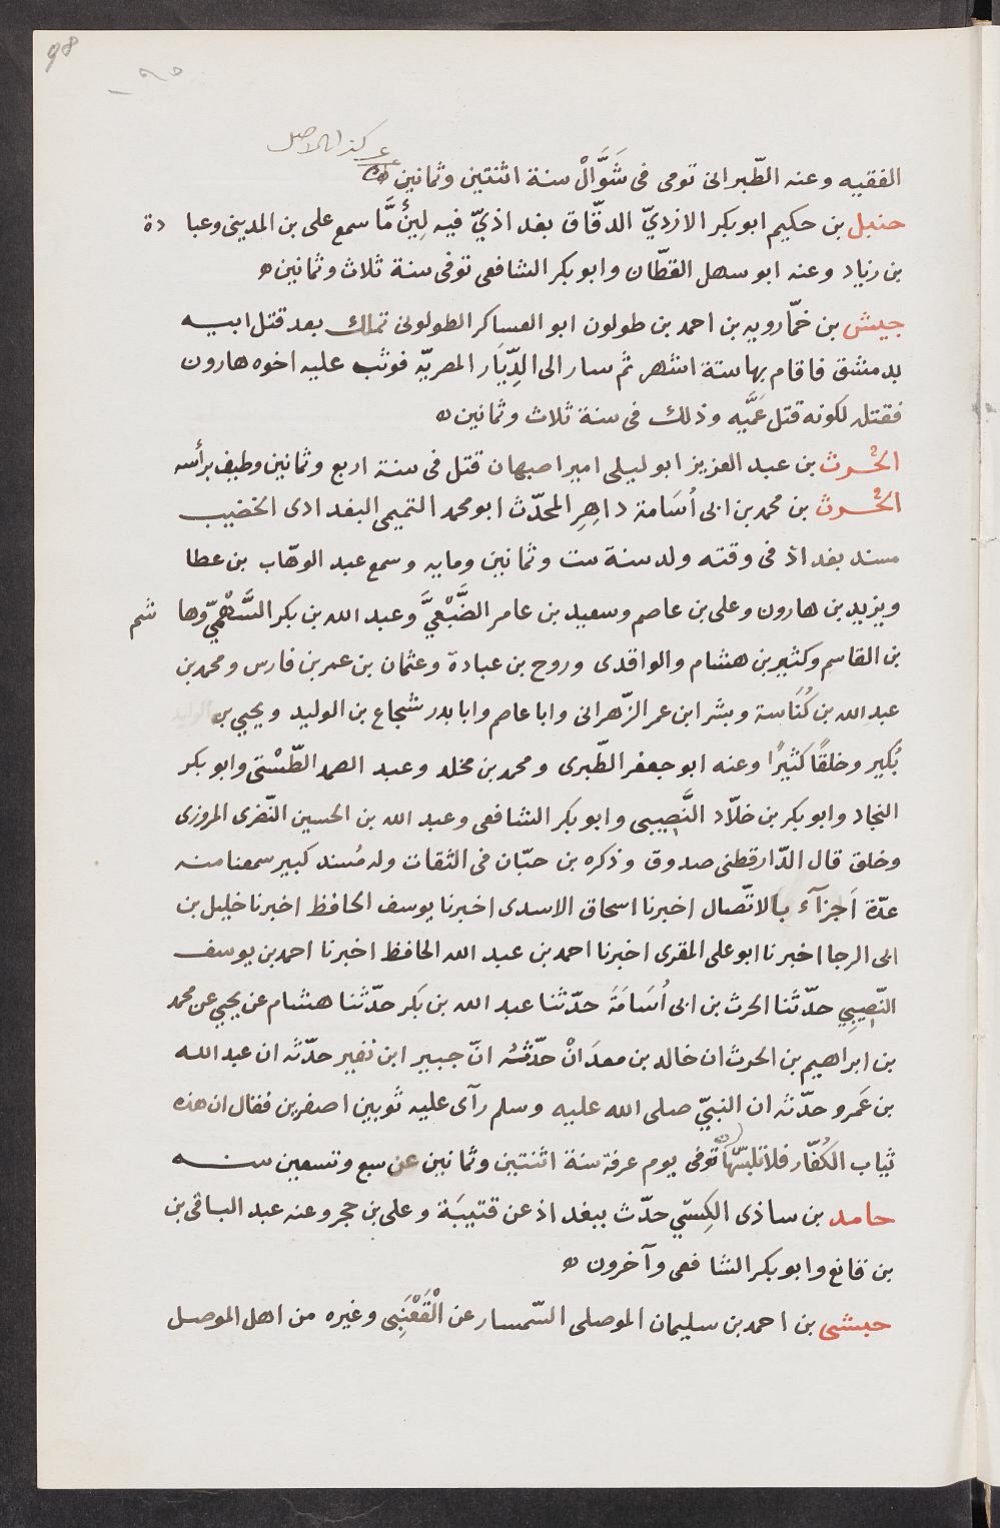 98
كذا بالاصل
الفقيه وعنه الطّبرانى توفى فى شَوَّالْ سنة اثنتين وثمانين ه
حنبل بن حكيم ابو بكر الازديّ الدقّاق بغداذيّ فيه لِينٌ مَّا سمع على بن المدينى وعبا دة
بن زياد وعنه ابو سهل القطّان وابو بكر الشافعى توفى سنة ثلاث وثمانين ه
جيش بن خمّارويه بن احمد بن طولون ابو العساكر الطولونى تملك بعد قتل ابيه
بدمشق فاقام بها ستة اشهر ثم سار الى الدِّيَار المصريّه فوثب عليه اخوه هارون
فقتله لكونه قتل عَمَّيه وذلك فى سنة ثلاث وثمانين ه
الحرث بن عبد العزيز ابو ليلى امير اصبهان قتل فى سنة اربع وثمانين وطيف برأسه
الحرث بن محمد بن ابى أسَامة داهِرِ المحدّث ابو محمد التميمى البغدادى الخضيب
مسند بغداذ فى وقته ولد سنة ست وثمانين ومايه وسمع عبد الوهّاب بن عطا
ويزيد بن هارون وعلى بن عاصم وسعيد بن عامر الضَّبْعيَّ وعبد الله بن بكر السَّهْميّ وها شم
بن القاسم وكثير بن هشام والواقدى وروح بن عبادة وعثمان بن عمر بن فارس ومحمد بن
عبد الله بن كُنَاسة وبشر ابن عمر الزّهرانى وابا عاصم وابا بدر شجاع بن الوليد ويحيى بن
بُكير وخلقًا كثيرًا وعنه ابو جعفر الطّبرى ومحمد بن مخلد وعبد الصمد الطّسْتى وابو بكر
النجاد وابو بكر بن خلّاد النَّصِيبى وابو بكر الشافعى وعبد الله بن الحسين النّضرى المروزى
وخلق قال الدّارقطنى صدوق وذكره بن حبّان فى الثقات وله مُسند كبير سمعنا منه
عدّة اَجزآء بالاتّصال اخبرنا اسحاق الاسدى اخبرنا يوسف الحافظ اخبرنا خليل بن
ابى الرجا اخبرنا ابو على المقرى اخبرنا احمد بن عبد الله الحافظ اخبرنا احمد بن يوسف
النّصِيبِي حدّثنا الحرث بن ابى أسَامَةَ حدّثنا عبد الله بن بَكر حدّثنا هشام عن يحيى عن محمد
بن ابراهيم بن الحرث ان خالد بن معدَانْ حدّثنُه انّ جبير ابن نفير حدّثه ان عبد الله
بن عَمرو حدّثه ان النبيّ صلى الله عليه وسلم رآى عليه ثوبين اصفرين فقال ان هذه
ثياب الكُفّار فلا تلبسْها توفى يوم عرفة سنة اثنتين وثمانين عن سبع وتسعين سنه
حامد بن ساذى الكِسّي حدّث ببغداذ عن قتيبَة وعلى بن حجر وعنه عبد الباقى بن
بن قانع وابو بكر الشافعى وآخرون ه
حبشى بن احمد بن سليمان الموصلى السّمسار عن الْقَعْنَبِى وغيره من اهل الموصل